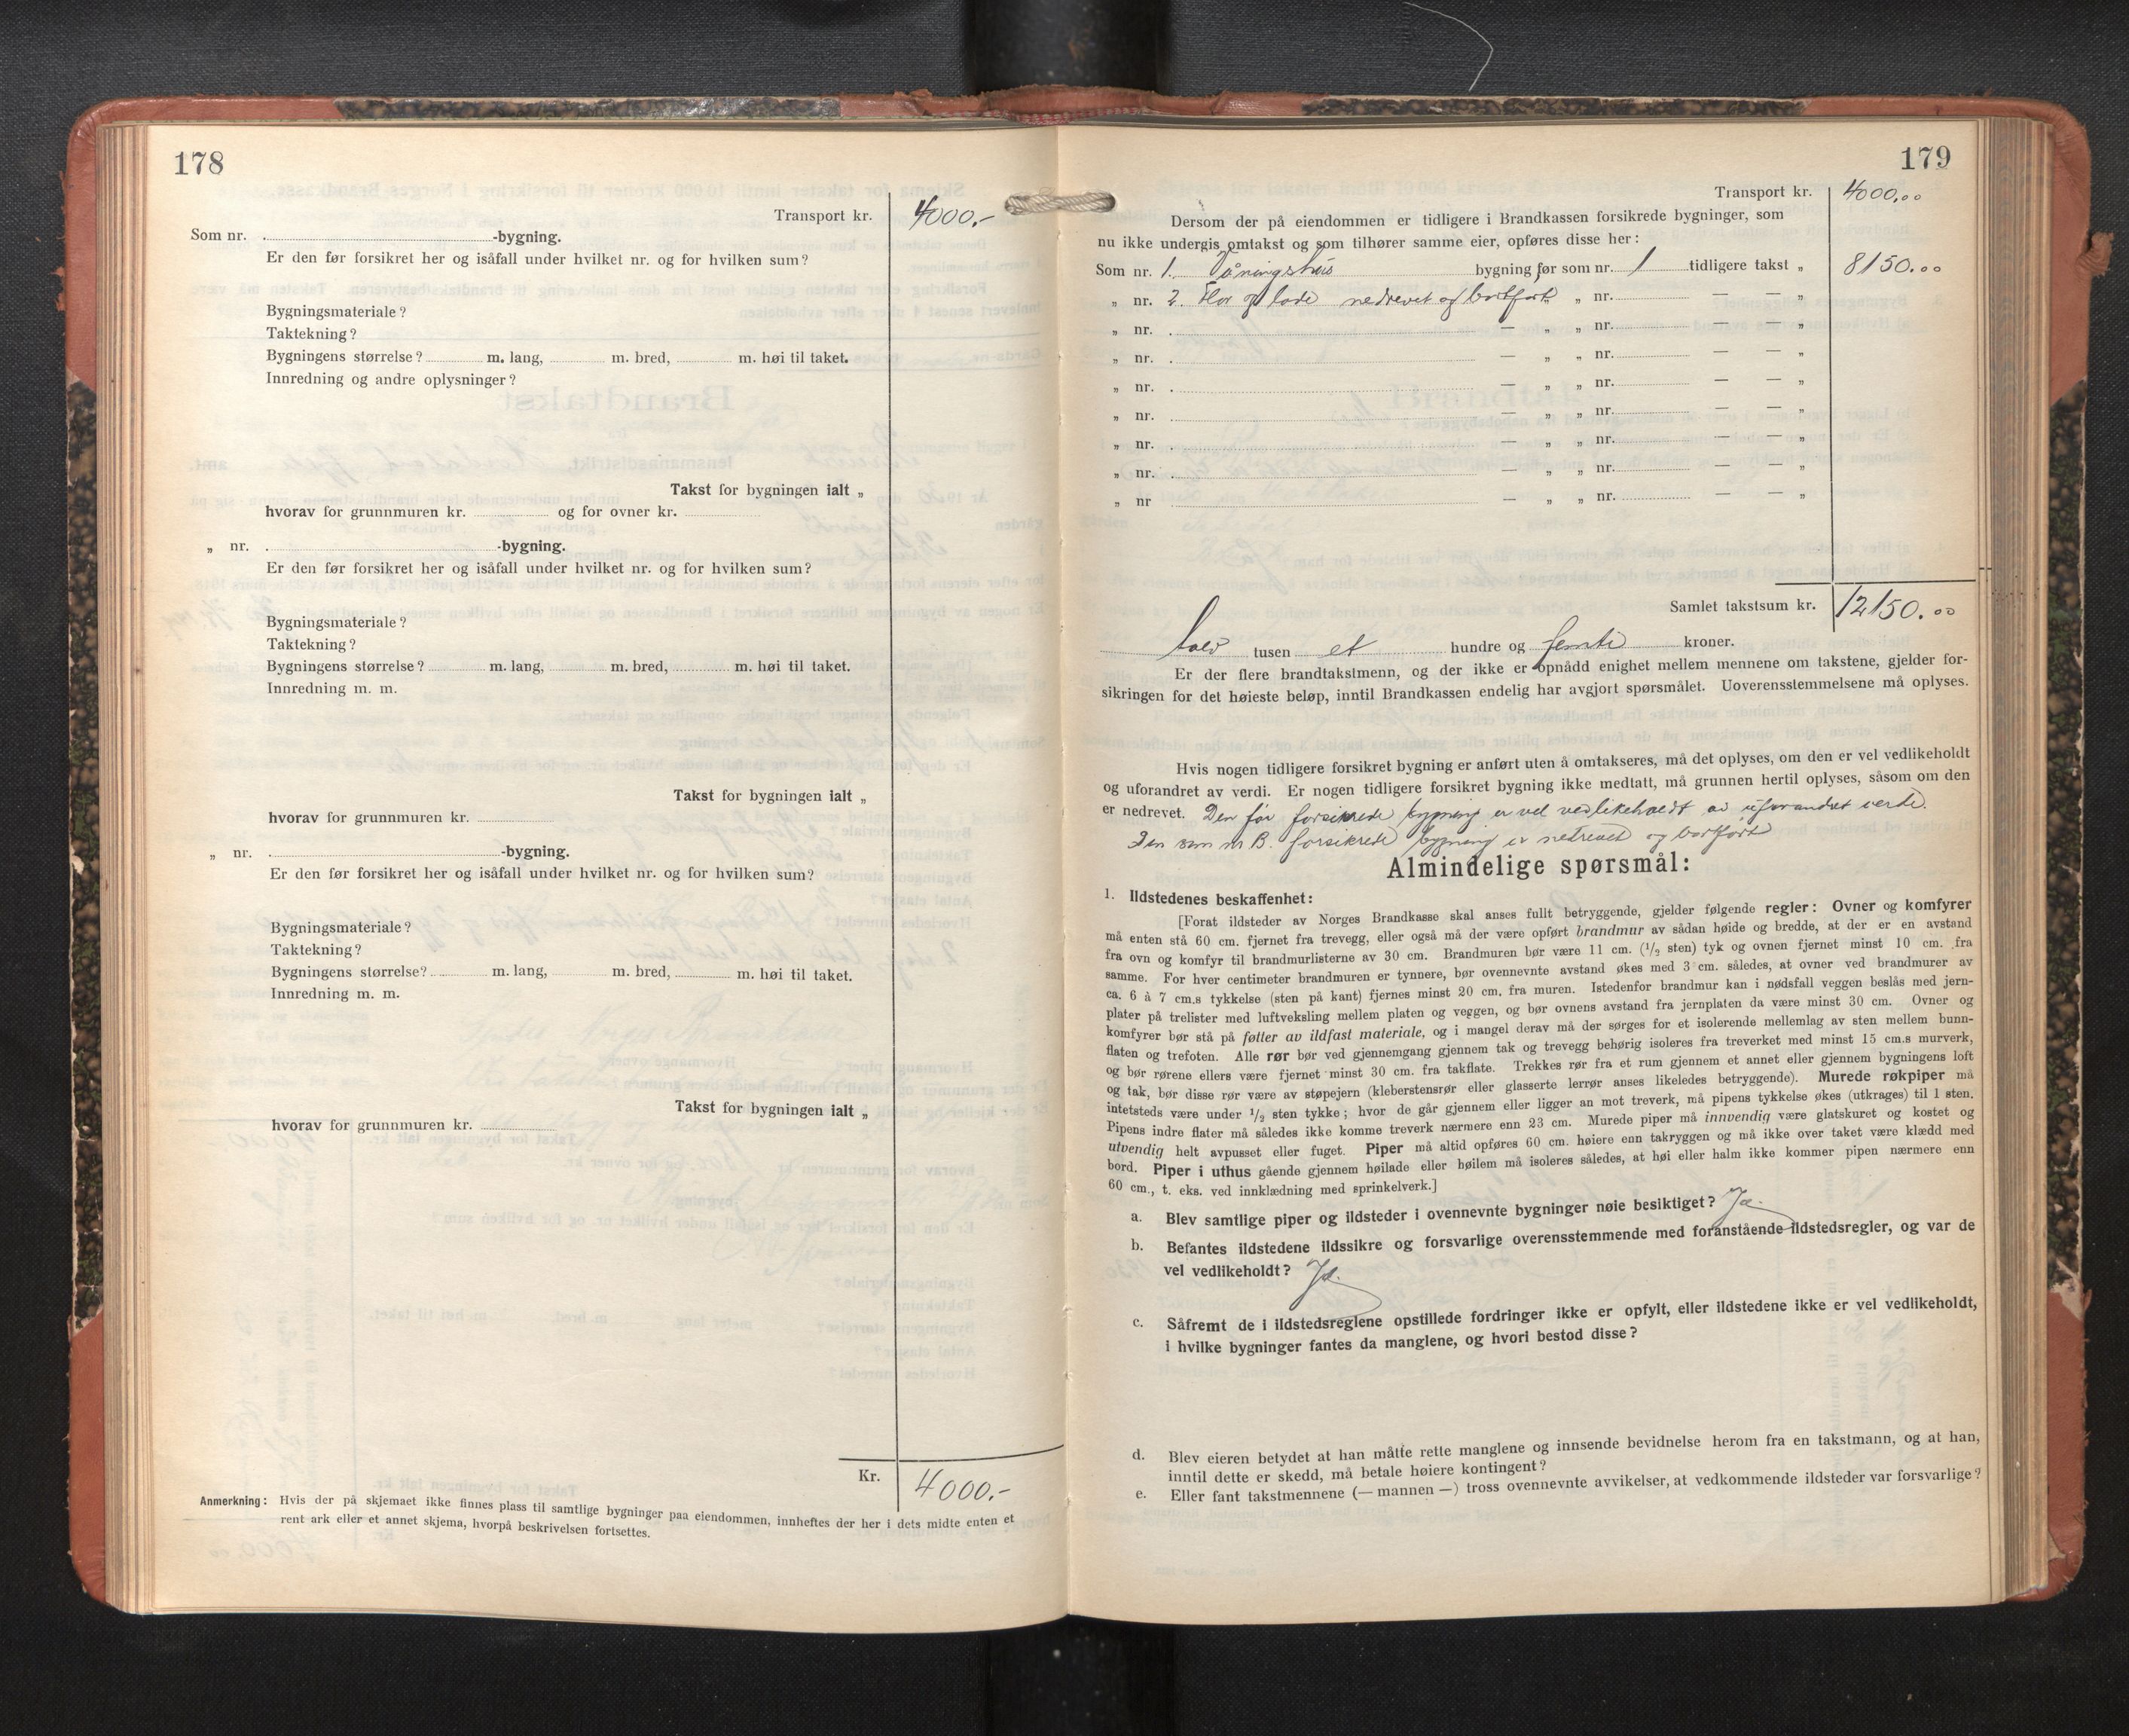 178
Transport kr. 4000.-
Som nr. -bygning.
Er den før forsikret her og isåfall under hvilket nr. og for hvilken sum?
Bygningsmateriale?
Taktekning?
Bygningens størrelse? m. lang, m. bred, m. høi til taket.
Innredning og andre oplysninger?
Takst for bygningen ialt „
hvorav for grunnmuren kr. og for ovner kr.
„ nr. -bygning.
Er den før forsikret her og isåfall under hvilket nr. og for hvilken sum?
Bygningsmateriale?
Taktekning?
Bygningens størrelse? m. lang, m. bred, m. høi til taket.
Innredning m. m.
Takst for bygningen ialt „
hvorav for grunnmuren kr.
„ nr. -bygning.
Er den før forsikret her og isåfall under hvilket nr. og for hvilken sum?
Bygningsmateriale?
Taktekning?
Bygningens størrelse? m. lang, m. bred, m. høi til taket.
Innredning m. m.
Takst for bygningen ialt „
hvorav for grunnmuren kr.
Kr. 4000.-
Anmerkning: Hvis der på skjemaet ikke finnes plass til samtlige bygninger paa eiendommen, innheftes der her i dets midte enten et
rent ark eller et annet skjema, hvorpå beskrivelsen fortsettes.
179
Transport kr. 4000.00
Dersom der på eiendommen er tidligere i Brandkassen forsikrede bygninger, som
nu ikke undergis omtakst og som tilhører samme eier, opføres disse her:
Som nr. 1. Våningshus bygning før som nr. 1 tidligere takst „ 8150.00
„ nr. 2. Flor og lade nedrevet og bortført „ nr. — — „
„ nr. . — „ „ nr. — — „
„ nr. . — „ „ nr. — — „
„ nr. . — „ „ nr. — — „
„ nr. . — „ „ nr. — — „
„ nr. . — „ „ nr. — — „
„ nr. . — „ „ nr. — — „
„ nr . — „ „ nr. — — „
Samlet takstsum kr. 12150.00
tolv tusen et hundre og femti kroner.
Er der flere brandtakstmenn, og der ikke er opnådd enighet mellem mennene om takstene, gjelder for-
sikringen for det høieste beløp, inntil Brandkassen endelig har avgjort spørsmålet. Uoverensstemmelsene må oplyses.
Hvis nogen tidligere forsikret bygning er anført uten å omtakseres, må det oplyses, om den er vel vedlikeholdt
og uforandret av verdi. Er nogen tidligere forsikret bygning ikke medtatt, må grunnen hertil oplyses, såsom om den
er nedrevet. Den før forsikrede bygning er vel vedlikeholdt av uforandret verdi.
Den som nr B. forsikrede bygning er nedrevet og bortført
Almindelige spørsmål:
1. Ildstedenes beskaffenhet:
[Forat ildsteder av Norges Brandkasse skal anses fullt betryggende, gjelder følgende regler: Ovner og komfyrer
må enten stå 60 cm. fjernet fra trevegg, eller også må der være opført brandmur av sådan høide og bredde, at der er en avstand
fra ovn og komfyr til brandmurlisterne av 30 cm. Brandmuren bør være 11 cm. (1/2 sten) tyk og ovnen fjernet minst 10 cm. fra
samme. For hver centimeter brandmuren er tynnere, bør ovennevnte avstand økes med 3 cm. således, at ovner ved brandmurer av
ca. 6 à 7 cm.s tykkelse (sten på kant) fjernes minst 20 cm. fra muren. Istedenfor brandmur kan i nødsfall veggen beslås med jern-
plater på trelister med luftveksling mellem platen og veggen, og bør ovnens avstand fra jernplaten da være minst 30 cm. Ovner og
komfyrer bør stå på føtter av ildfast materiale, og i mangel derav må der sørges for et isolerende mellemlag av sten mellem bunn-
flaten og trefoten. Alle rør bør ved gjennemgang gjennem tak og trevegg behørig isoleres fra treverket med minst 15 cm.s murverk,
og bør rørene ellers være fjernet minst 30 cm. fra takflate. Trekkes rør fra et rum gjennem et annet eller gjennem bygningens loft
og tak, bør disse rør være av støpejern (kleberstensrør eller glasserte lerrør anses likeledes betryggende). Murede røkpiper må
intetsteds være under 1/2 sten tykke; hvor de går gjennem eller ligger an mot treverk, må pipens tykkelse økes (utkrages) til 1 sten.
Pipens indre flater må således ikke komme treverk nærmere enn 23 cm. Murede piper må innvendig være glatskuret og kostet og
utvendig helt avpusset eller fuget. Piper må altid opføres 60 cm. høiere enn takryggen og må ikke over taket være klædd med
bord. Piper i uthus gående gjennem høilade eller høilem må isoleres således, at høi eller halm ikke kommer pipen nærmere enn
60 cm., t. eks. ved innklædning med sprinkelverk.]
a. Blev samtlige piper og ildsteder i ovennevnte bygninger nøie besiktiget? Ja.
b. Befantes ildstedene ildssikre og forsvarlige overensstemmende med foranstående ildstedsregler, og var de
vel vedlikeholdt? Ja.
c. Såfremt de i ildstedsreglene opstillede fordringer ikke er opfylt, eller ildstedene ikke er vel vedlikeholdt,
i hvilke bygninger fantes da manglene, og hvori bestod disse?
d. Blev eieren betydet at han måtte rette manglene og innsende bevidnelse herom fra en takstmann, og at han,
inntil dette er skedd, må betale høiere kontingent?
e. Eller fant takstmennene (— mannen —) tross ovennevnte avvikelser, at vedkommende ildsteder var forsvarlige?